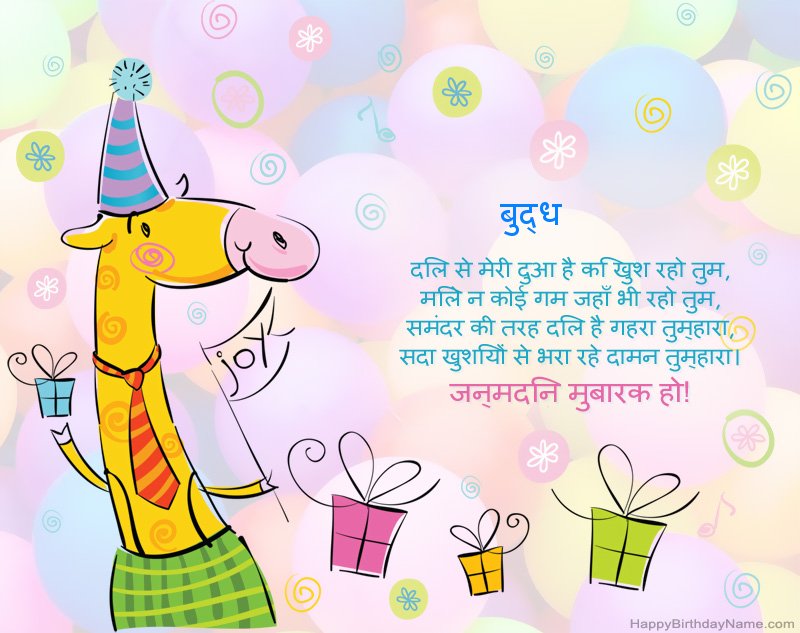 बुद्ध
दिल से मेरी दुआ है कि खुश रहो तुम,
मिले न कोई गम जहाँ भी रहो तुम,
समंदर की तरह दिल है गहरा तुम्हारा,
सदा खुशियों से भरा रहे दामन तुम्हारा।
जन्मदिन मुबारक हो!
joy
HappyBirthdayName.com